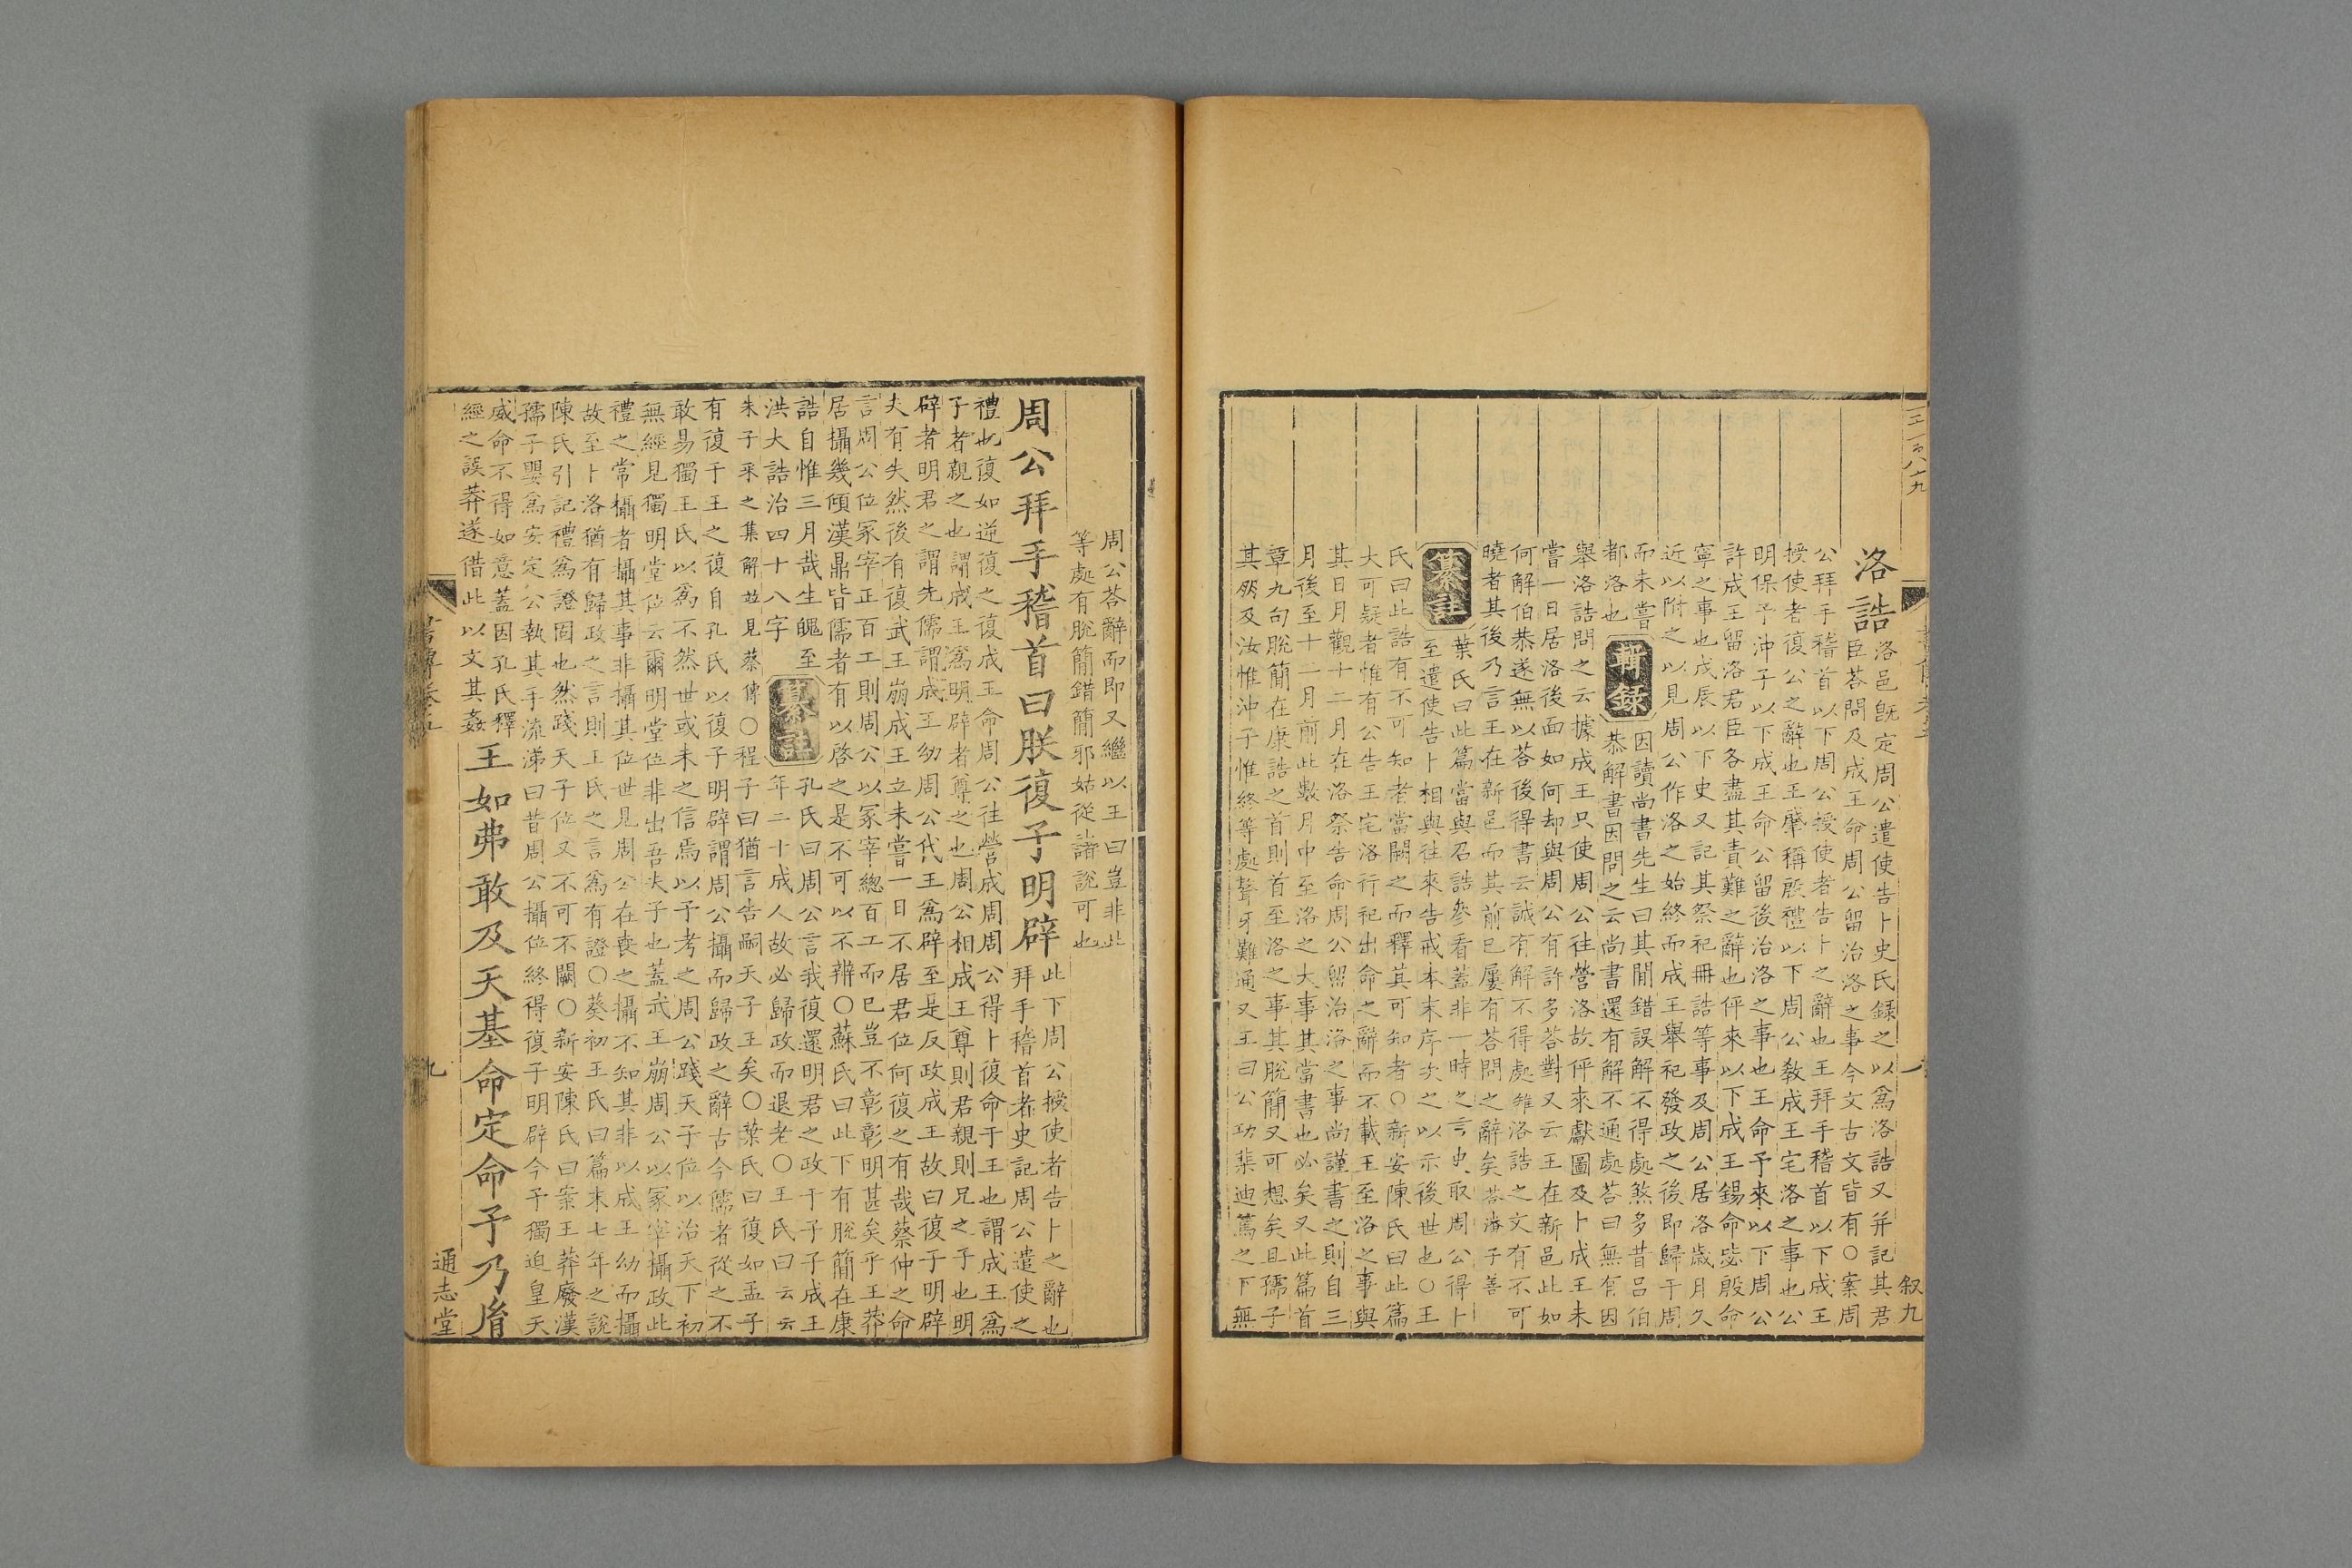 三百八十九
書傳卷五
八
叙九
洛誥
洛邑旣定周公遣使告卜史氏錄之以爲洛誥又幷記其君
臣荅問及成王命周公留治洛之事今文古文皆有○案周
公拜手稽首以下周公授使者告卜之辭也王拜手稽首以下成王
授使者復公之辭也王肇稱殷禮以下周公敎成王宅洛之事也公
明保予沖子以下成王命公留後治洛之事也王命予來以下周公
許成王留洛君臣各盡其責難之辭也伻來以下成王錫命毖殷命
寧之事也戊辰以下史又記其祭祀冊誥等事及周公居洛歲月久
近以附之以見周公作洛之始終而成王舉祀發政之後即歸于周
而未嘗
都洛也
輯錄
因讀尚書先生曰其閒錯誤解不得處煞多昔呂伯
恭解書因問之云尚書還有解不通處荅曰無有因
舉洛誥問之云據成王只使周公往營洛故伻來獻圖及卜成王未
嘗一日居洛後面如何却與周公有許多荅對又云王在新邑此如
何解伯恭遂無以荅後得書云誠有解不得處雉洛誥之文有不可
曉者其後乃言王在新邑而其前已屢有荅問之辭矣荅潘子善
纂註
葉氏曰此篇當與召誥參看蓋非一時之言史取周公得卜
至遣使告卜相與往來告戒本末序次之以示後世也○王
氏曰此誥有不可知者當闕之而釋其可知者○新安陳氏曰此篇
大可疑者惟有公告王宅洛行祀出命之辭而不載王至洛之事與
其日月觀十二月在洛祭告命周公留治洛之事尚謹書之則自三
月後至十二月前此數月中至洛之大事其當書也必矣又此篇首
章九句脫簡在康誥之首則首至洛之事其脫簡又可想矣且孺子
其朋及汝惟沖子惟終等處聱牙難通又王曰公功棐迪篤之下無
周公荅辭而即又繼以王曰豈非此
等處有脫簡錯簡邪姑從諸說可也
周公拜手稽首曰朕復子明辟
此下周公授使者告卜之辭也
拜手稽首者史記周公遣使之
禮也復如逆復之復成王命周公往營成周周公得卜復命于王也謂成王爲
子者親之也謂成王爲明辟者尊之也周公相成王尊則君親則兄之子也明
辟者明君之謂先儒謂成王幼周公代王爲辟至是反政成王故曰復子明辟
夫有失然後有復武王崩成王立未嘗一日不居君位何復之有哉蔡仲之命
言周公位冢宰正百工則周公以冢宰總百工而已豈不彰彰明甚矣乎王莽
居攝幾傾漢鼎皆儒者有以啓之是不可以不辨○蘇氏曰此下有脫簡在康
誥自惟三月哉生魄至
洪大誥治四十八字
纂註
孔氏曰周公言我復還明君之政于子子成王
年二十成人故必歸政而退老○王氏曰云云
朱子采之集解並見蔡傳○程子曰猶言告嗣天子王矣○葉氏曰復如孟子
有復于王之復自孔氏以復子明辟謂周公攝而歸政之辭古今儒者從之不
敢易獨王氏以爲不然世或未之信焉以予考之周公踐天子位以治天下初
無經見獨明堂位云爾明堂位非出吾夫子也蓋武王崩周公以冢宰攝政此
禮之常攝者攝其事非攝其位世見周公在喪之攝不知其非以成王幼而攝
故至卜洛猶有歸政之言則王氏之言爲有證○葵初王氏曰篇末七年之說
陳氏引記禮爲證固也然踐天子位又不可不闢○新安陳氏曰案王莽廢漢
孺子嬰爲安定公執其手流涕曰昔周公攝位終得復子明辟今予獨迫皇天
威命不得如意蓋因孔氏釋
經之誤莽遂借此以文其姦
王如弗敢及天基命定命予乃胤
書傳卷五
九
通志堂